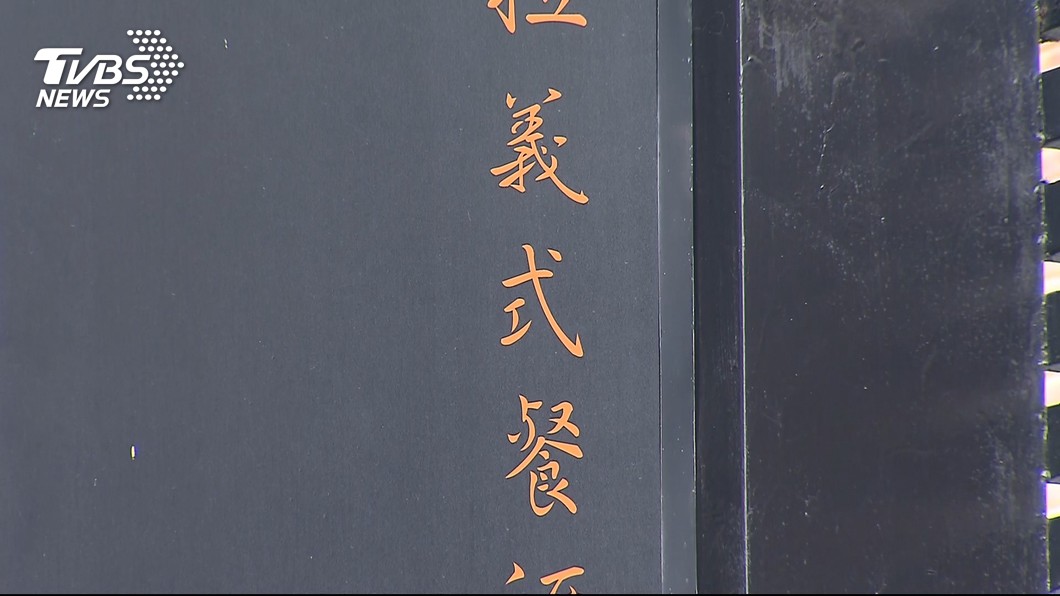 TVBS
NEWS
義式餐